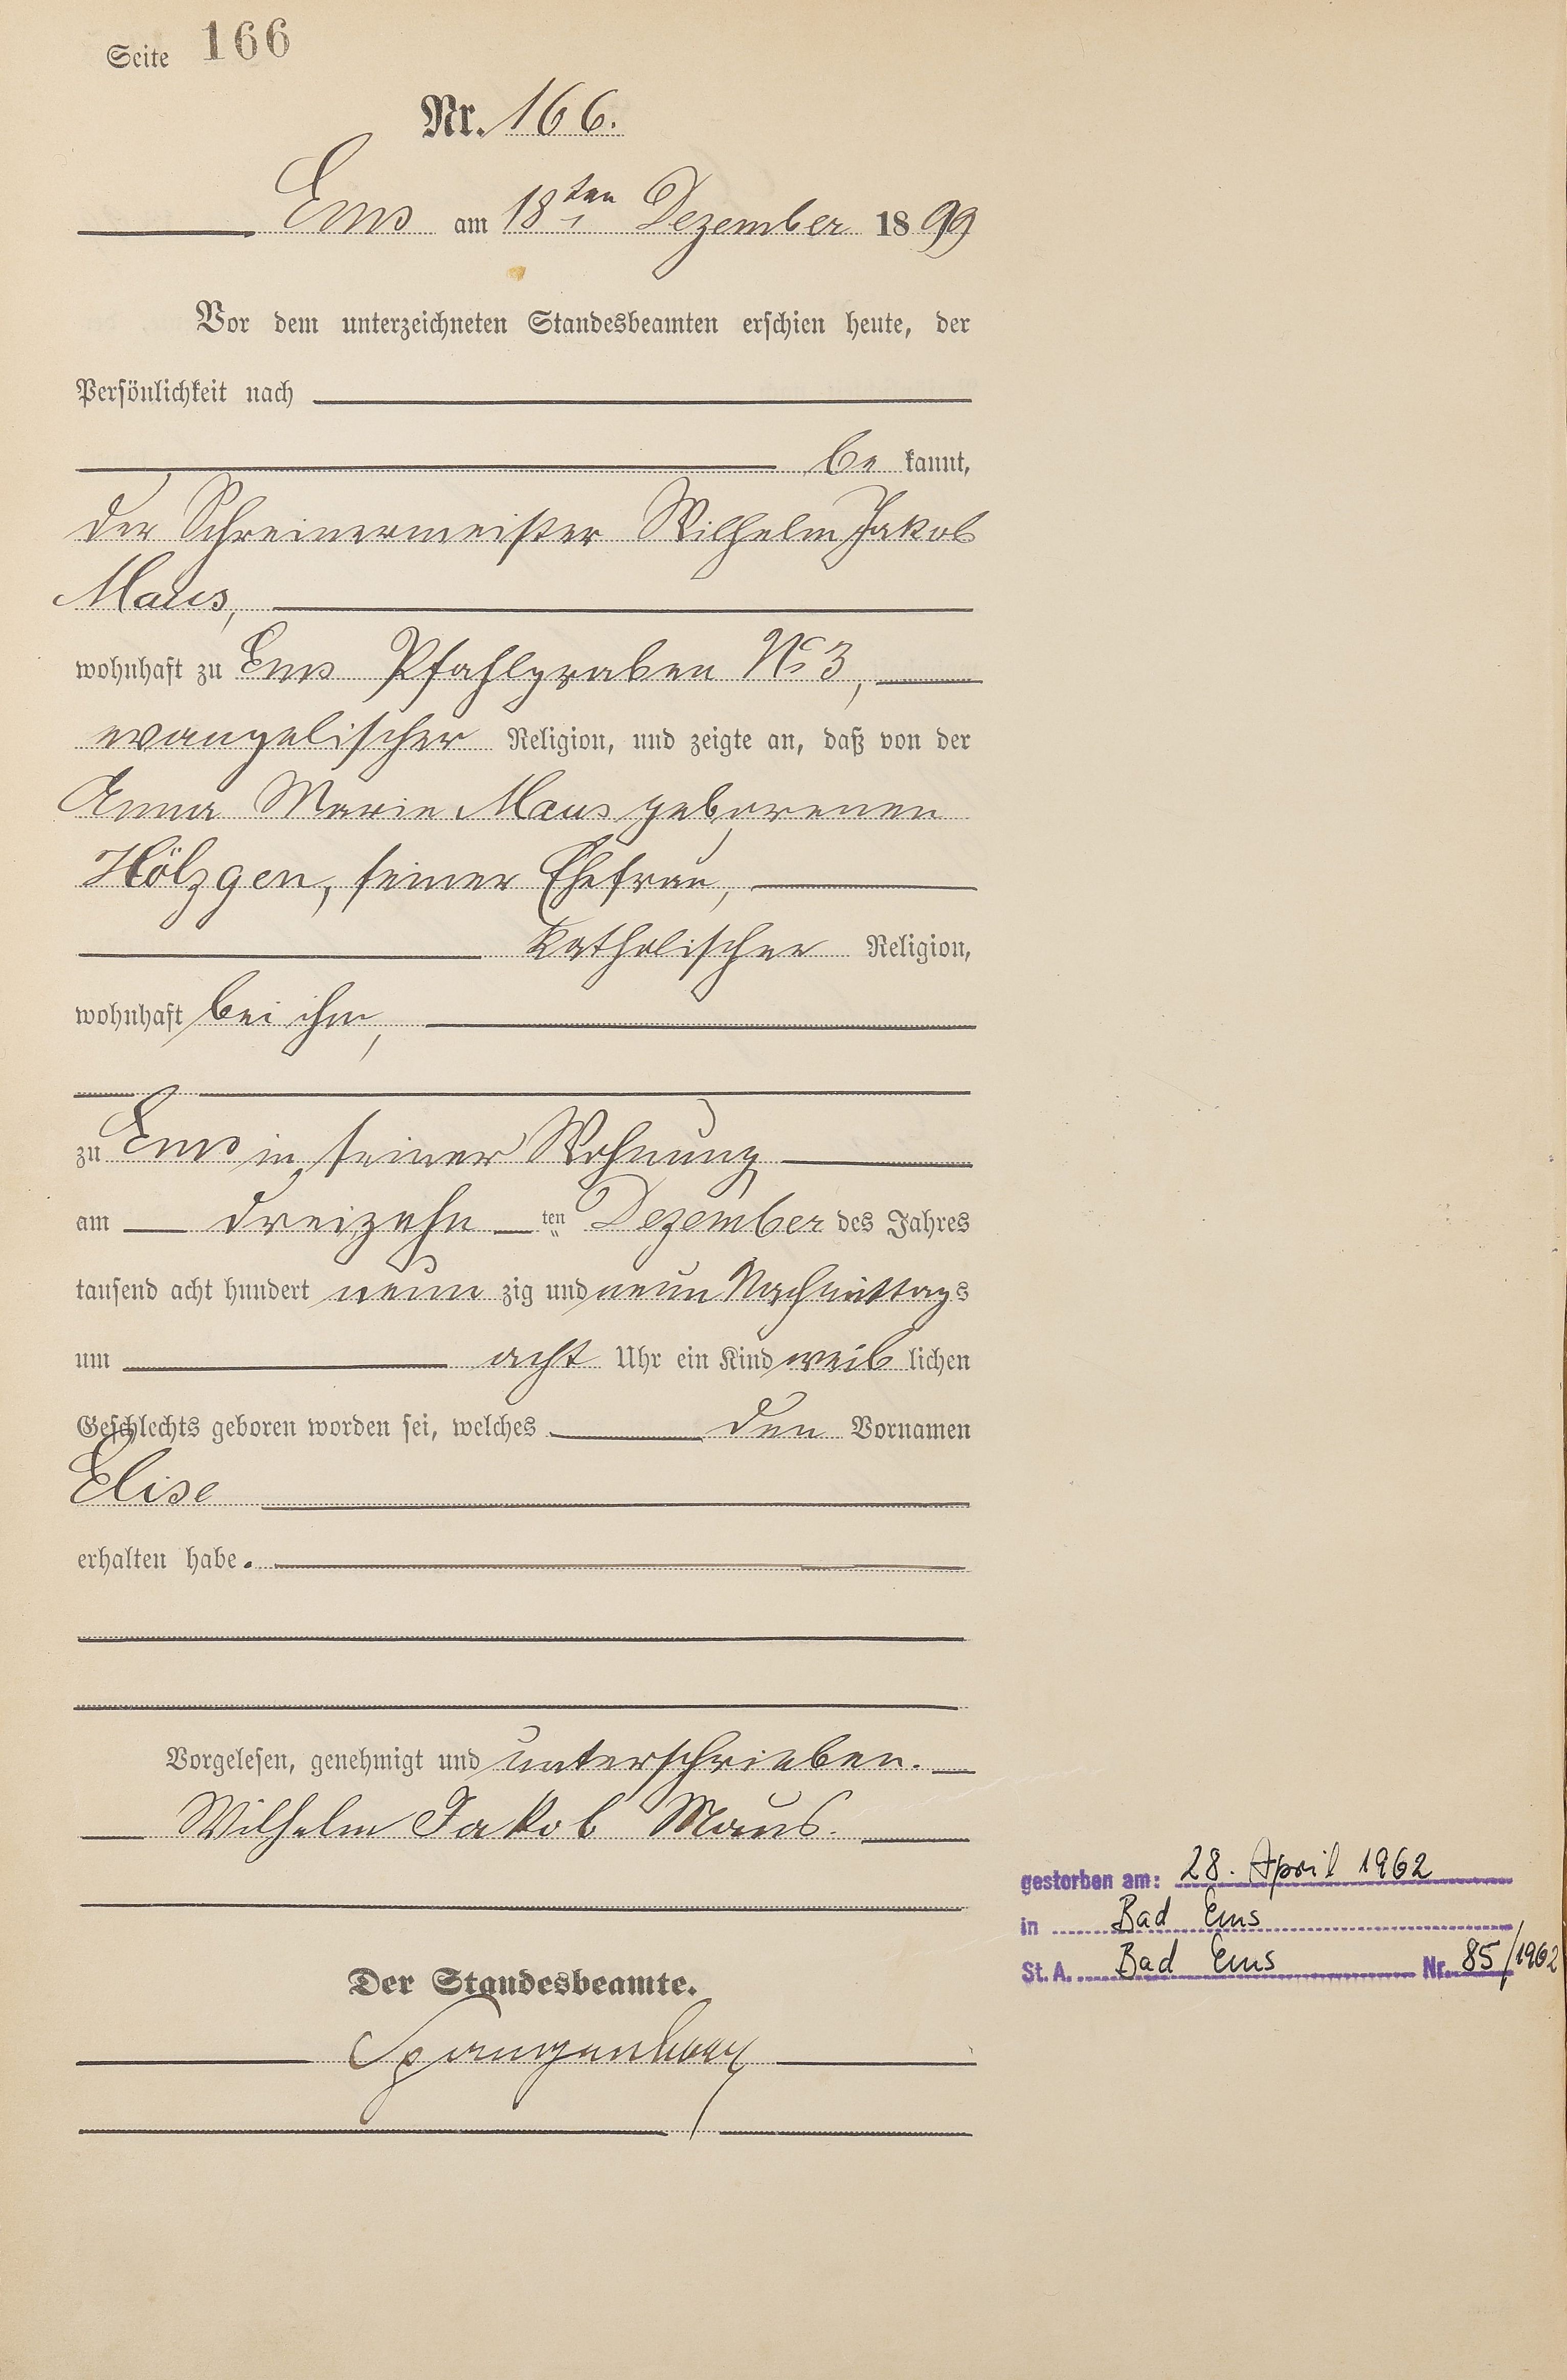 Seite 166
Nr. 166.
Ems am 18ten Dezember 1899
Vor dem unterzeichneten Standesbeamten erschien heute, der
Persönlichkeit nach
be kannt,
der Schreinermeister Wilhelm Jakob
Maus,
wohnhaft zu Ems Pfahlgraben No 3,
evangelischer Religion, und zeigte an, daß von der
Anna Marie Maus geborenen
Hölzgen, seiner Ehefrau,
katholischer Religion,
wohnhaft bei ihm,
zu Ems in seiner Wohnung
am dreizehn ten Dezember des Jahres
tausend acht hundert neun zig und neun Nachmittags
um acht Uhr ein Kind weib lichen
Geschlechts geboren worden sei, welches den Vornamen
Elise
erhalten habe.
Vorgelesen, genehmigt und unterschrieben.
Wilhelm Jakob Maus.
gestorben am: 28. April 1962
in Bad Ems
St. A. Bad Ems Nr. 85/1962
Der Standesbeamte.
Spangenberg